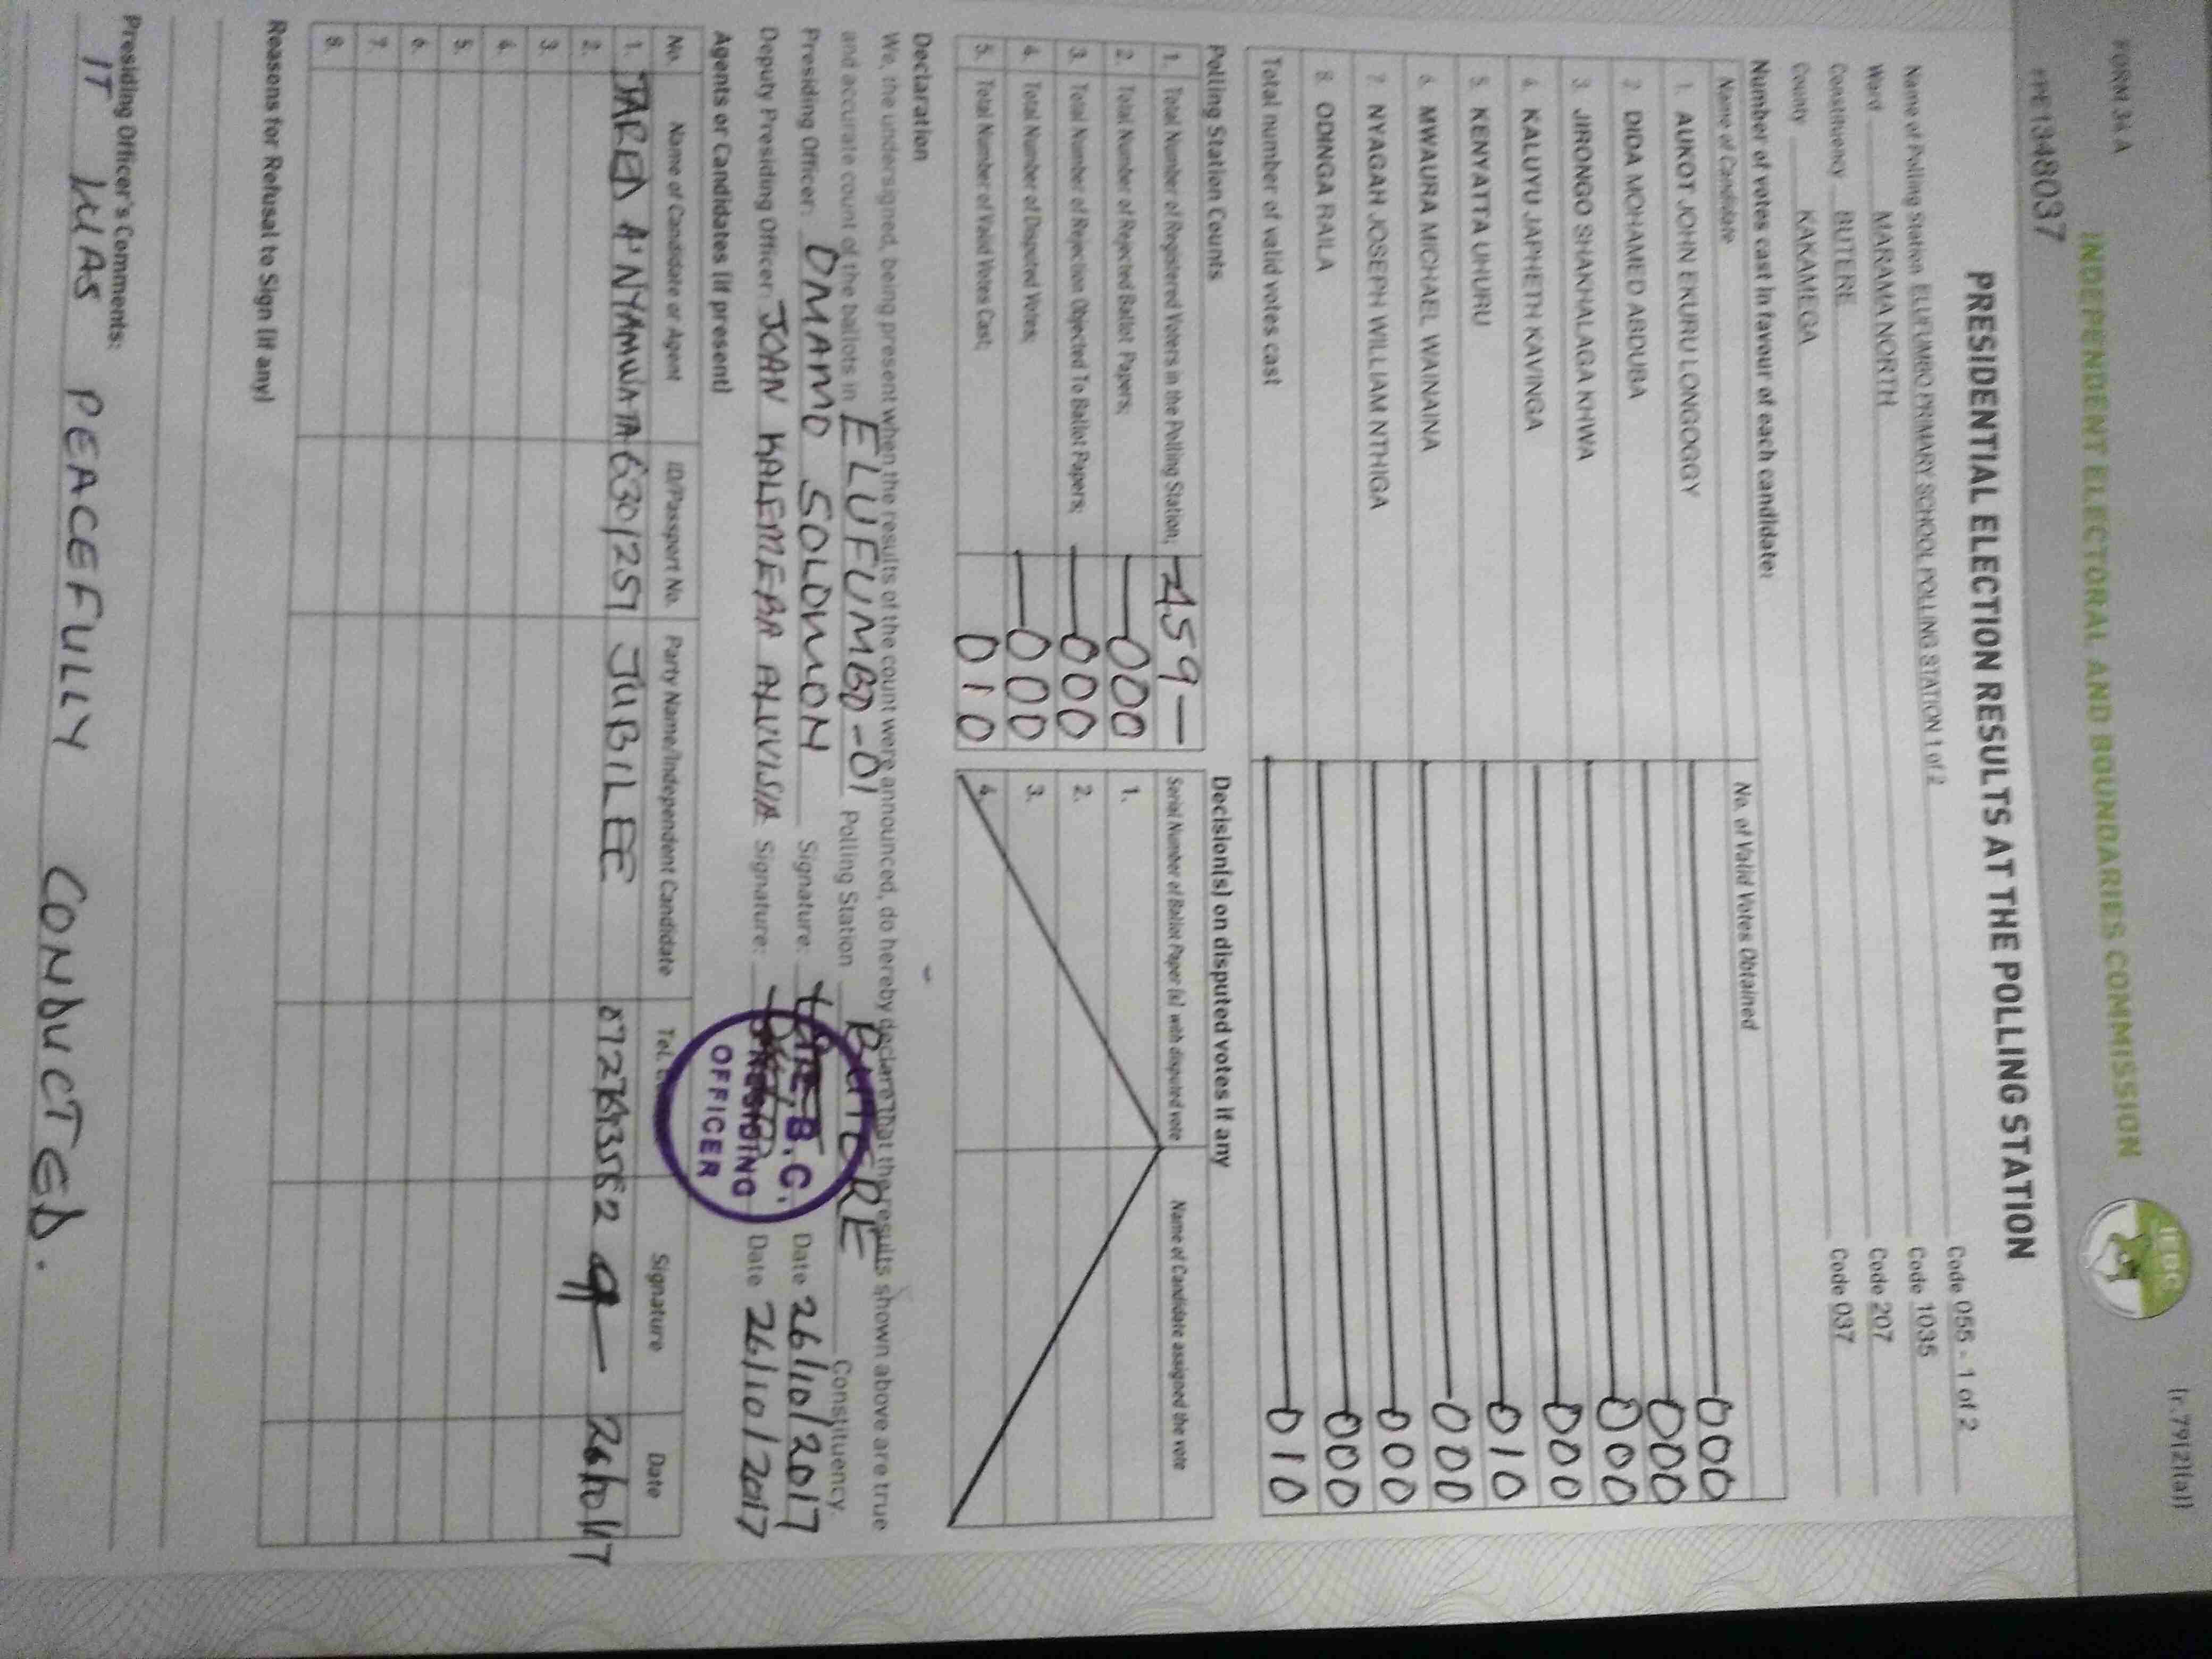 FORM 34 A
r. 79(2)(a)
INDEPENDENT ELECTORAL AND BOUNDARIES COMMISSION
IEBC
PRESIDENTIAL ELECTION RESULTS AT THE POLLING STATION
Name of Polling Station ELUFUMBO PRIMARY SCHOOL POLLING STATION 1 of 2 Code 055 - 1 of 2
Ward MARAMA NORTH Code 1035
Constituency BUTERE Code 207
County KAKAMEGA Code 037
Number of votes cast in favour of each candidate:
Name of Candidate No. of Valid Votes Obtained
1. AUKOT JOHN EKURU LONGOGGY 000
2. DIDA MOHAMED ABDUBA 000
3. JIRONGO SHAKHALAGA KHWA 000
4. KALUYU JAPHETH KAVINGA 000
5. KENYATTA UHURU 010
6. MWAURA MICHAEL WAINAINA 000
7. NYAGAH JOSEPH WILLIAM NTHIGA 000
8. ODINGA RAILA 000
Total number of valid votes cast 010
Polling Station Counts
1. Total Number of Registered Voters in the Polling Station; 459
2. Total Number of Rejected Ballot Papers; 000
3. Total Number of Rejection Objected To Ballot Papers; 000
4. Total Number of Disputed Votes; 000
5. Total Number of Valid Votes Cast; 010
Decision(s) on disputed votes if any
Serial Number of Ballot Paper (s) with disputed vote Name of Candidate assigned the vote
1.
2.
3.
4.
Declaration
We, the undersigned, being present when the results of the count were announced, do hereby declare that the results shown above are true
and accurate count of the ballots in ELUFUMBO-01 Polling Station BUTERE Constituency.
Presiding Officer: OMAMO SOLOMON Signature: Date 26/10/2017
Deputy Presiding Officer: JOAN Signature: Date 26/10/2017
PRESIDING
OFFICER
Agents or Candidates (if present)
No. Name of Candidate or Agent ID/Passport No. Party Name/Independent Candidate Tel. Signature Date
1. JARED A'NYAMWATA 6301251 JUBILEE 26/10/17
2.
3.
4.
5.
6.
7.
8.
Reasons for Refusal to Sign (if any)
Presiding Officer's Comments:
IT WAS PEACEFULLY CONDUCTED.